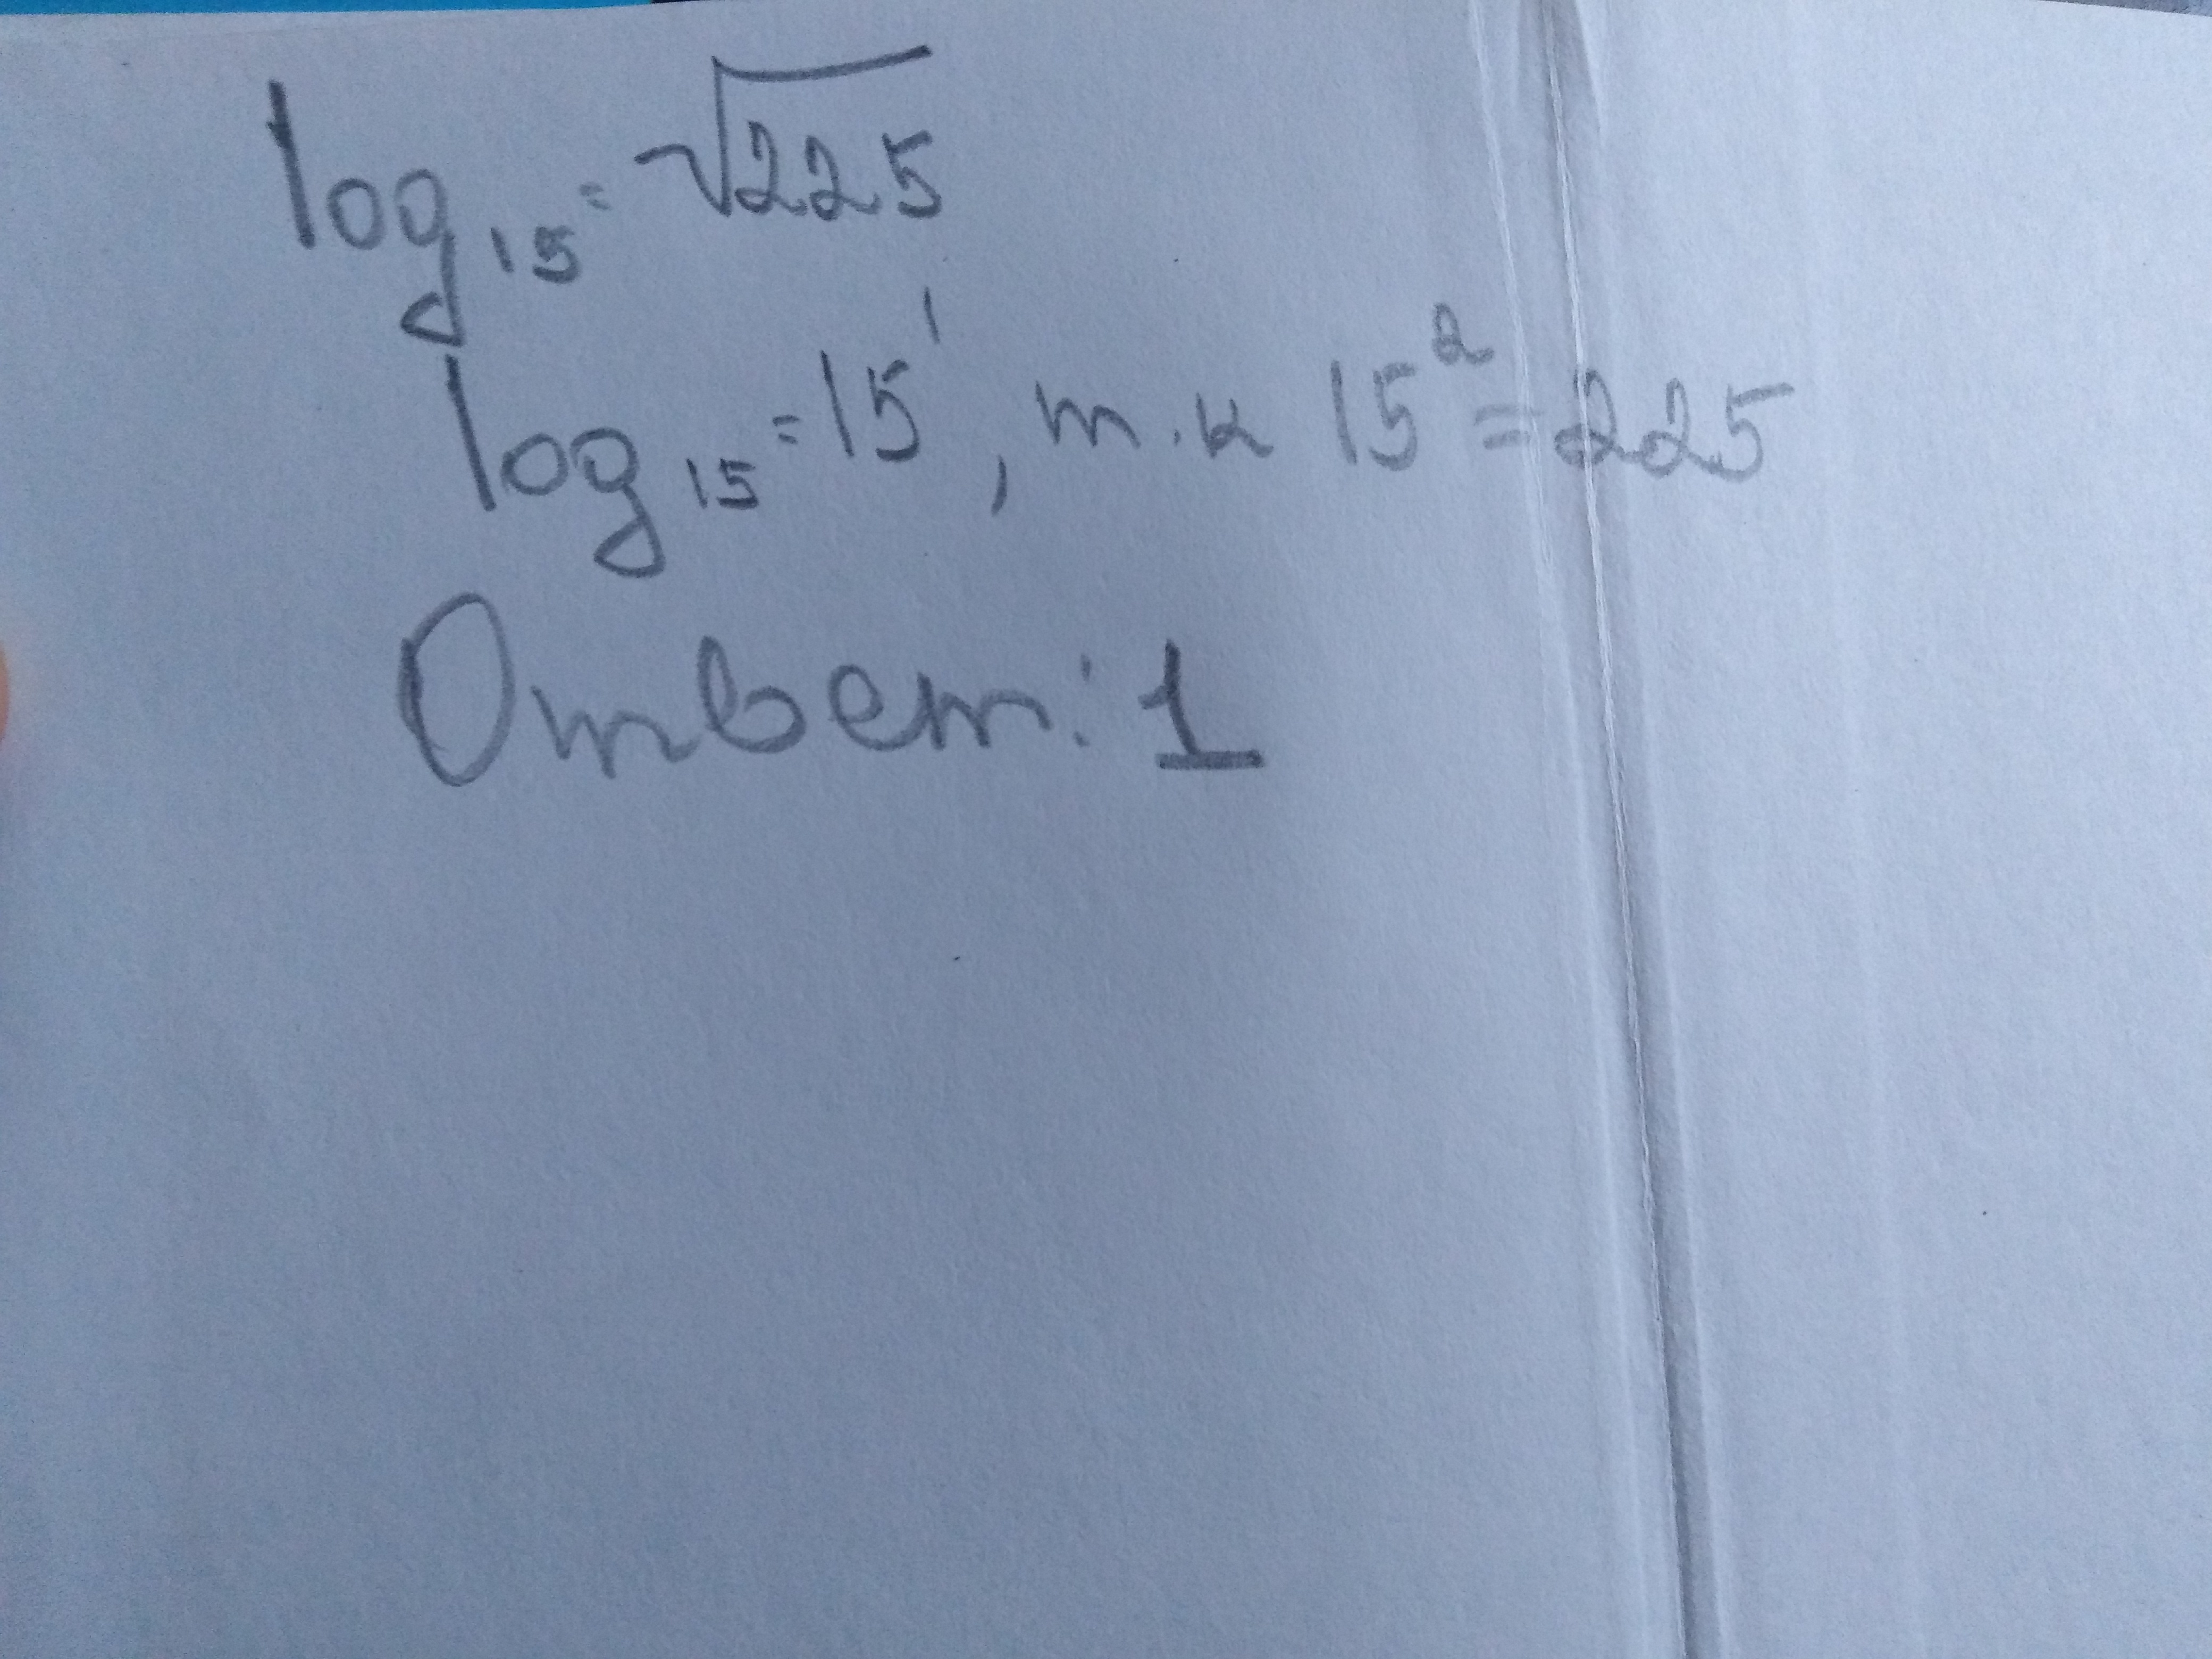 log₁₅ = √225
log₁₅ = 15¹, т.к 15² = 225
Ответ: 1